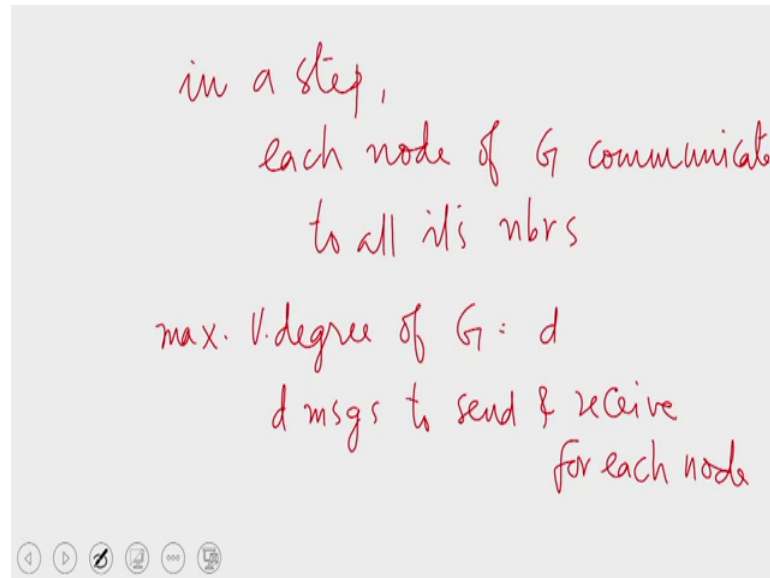 in a step,
each node of G communicate
to all it's nbrs
max. V.degree of G : d
d msgs to send & receive
for each node